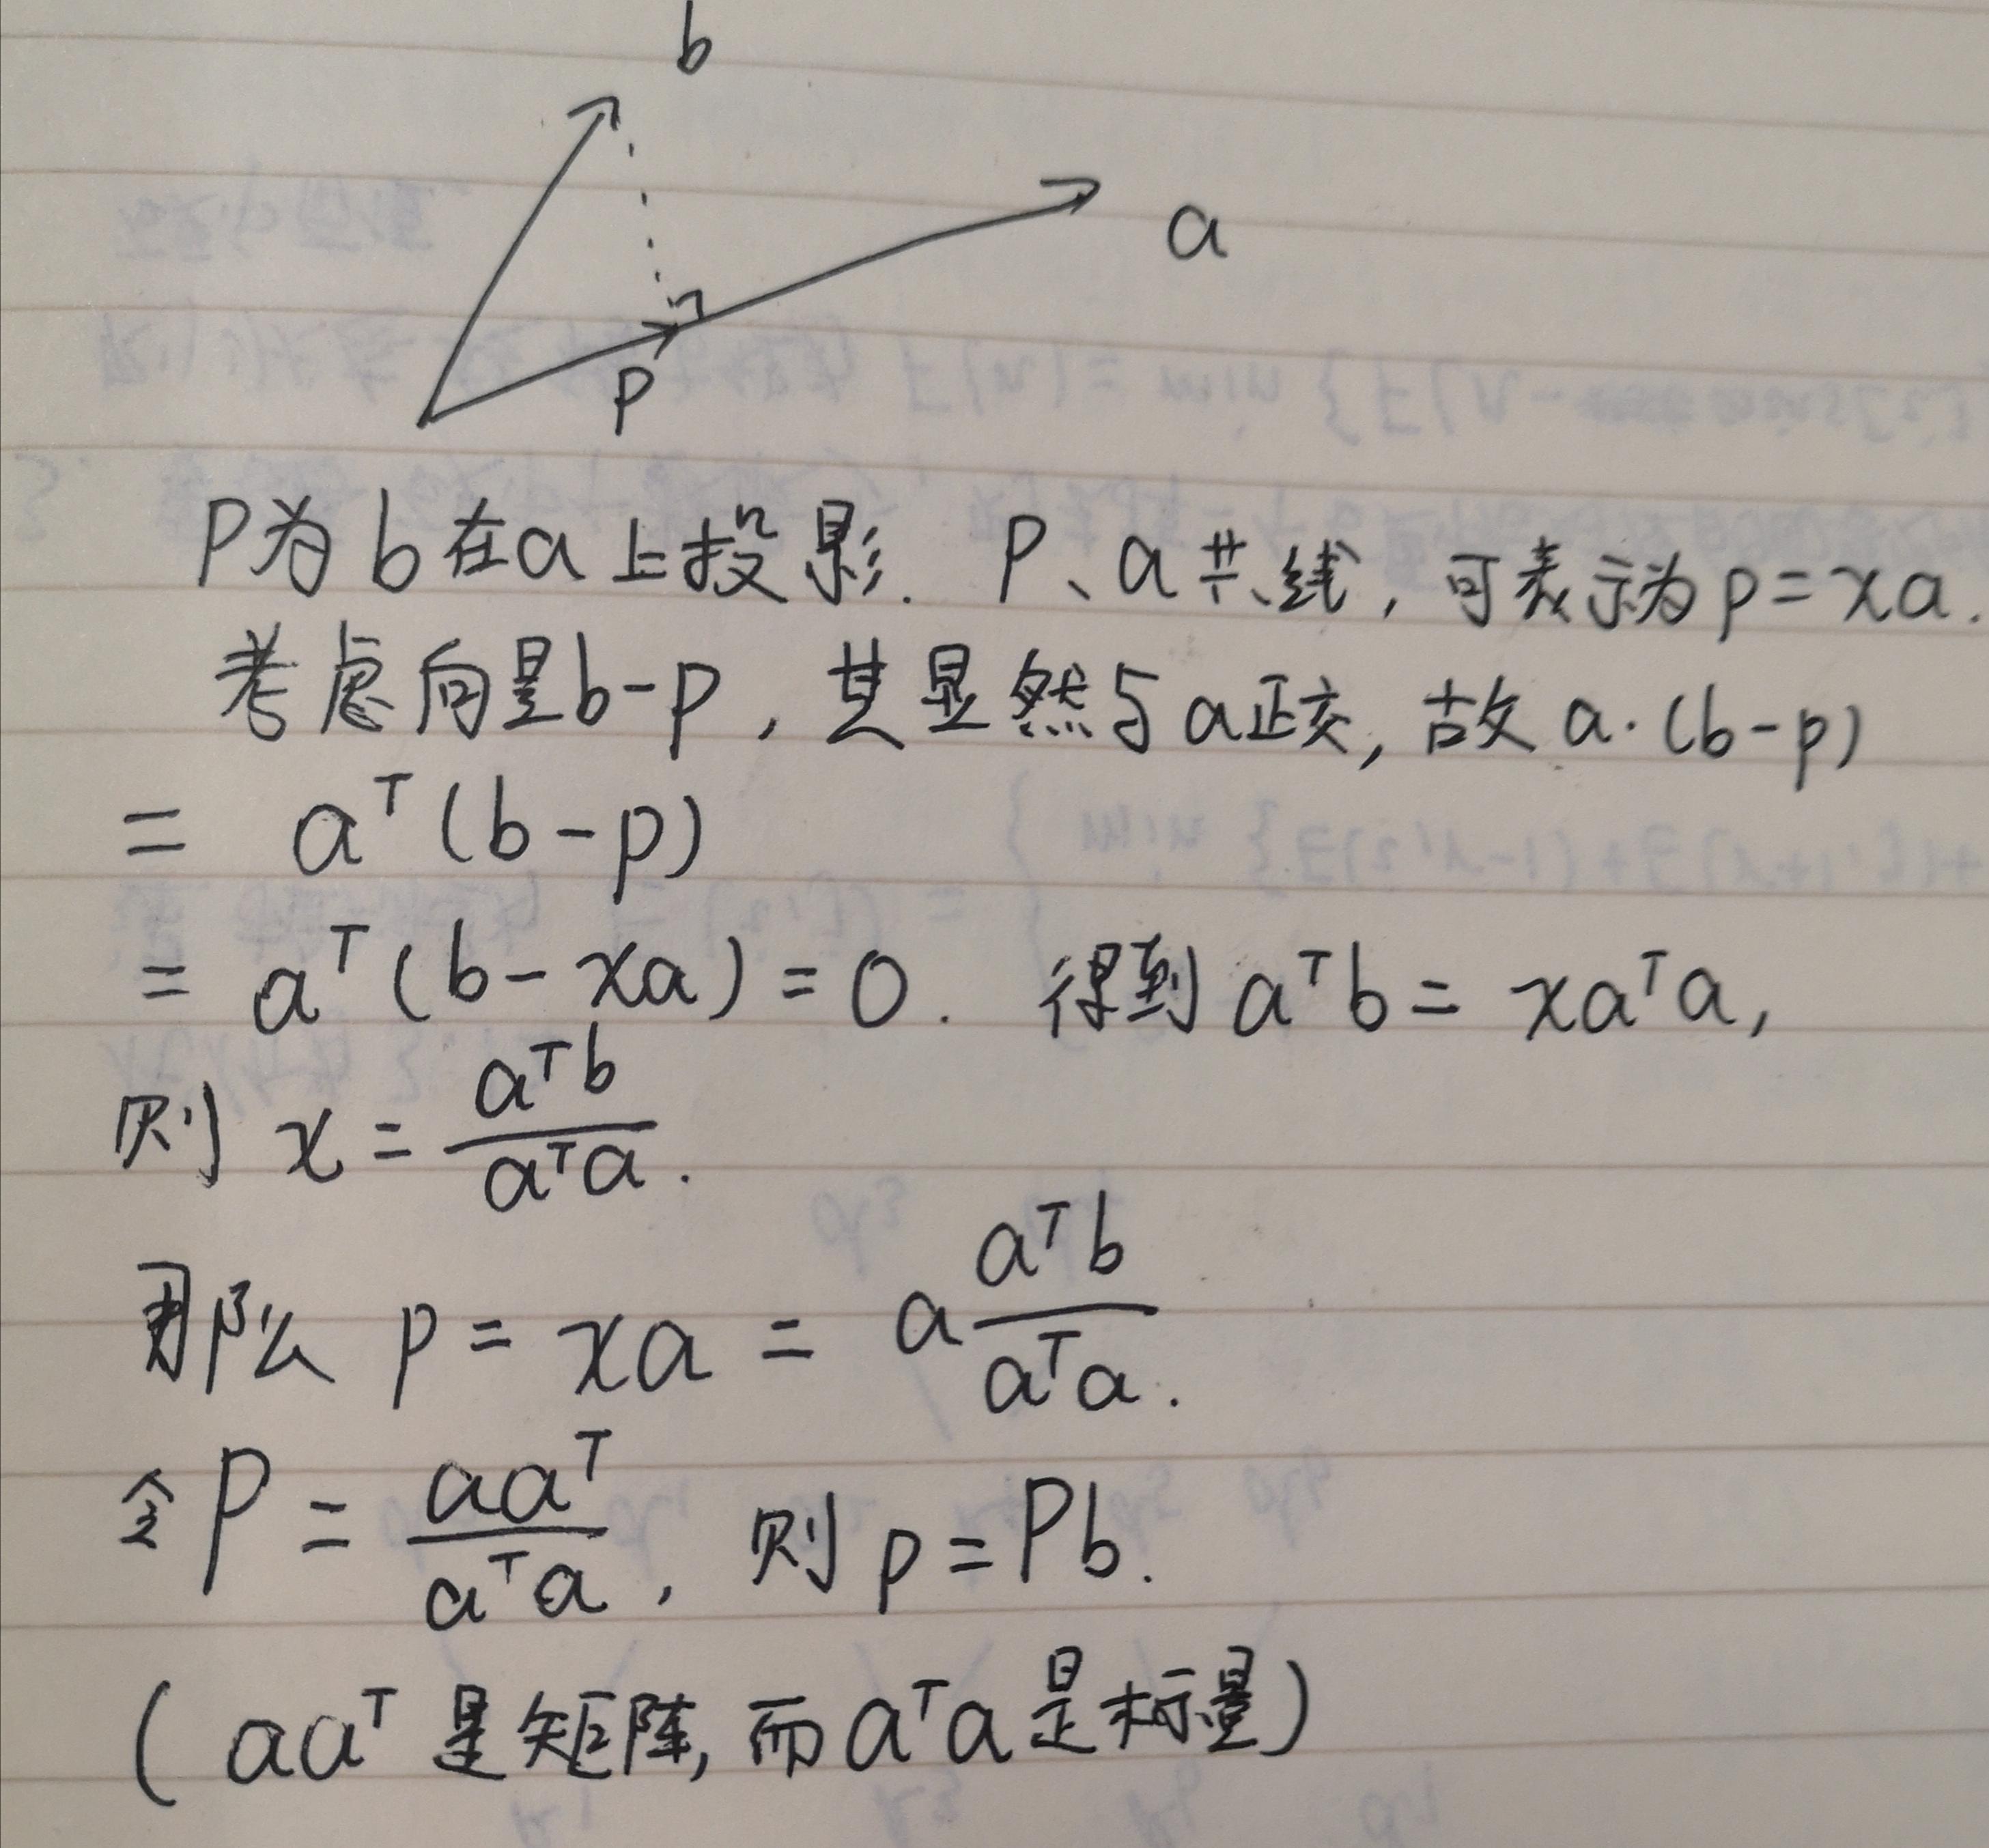 b
a
p
P为b在a上投影. P、a共线,可表示为p=xa.
考虑向量b-p,其显然与a正交,故a·(b-p)
= aᵀ(b-p)
= aᵀ(b-xa)=0. 得到aᵀb=xaᵀa,
则 x = aᵀb / aᵀa.
那么 p = xa = a aᵀb / aᵀa.
令P = aaᵀ / aᵀa, 则p=Pb.
(aaᵀ是矩阵,而aᵀa是标量)